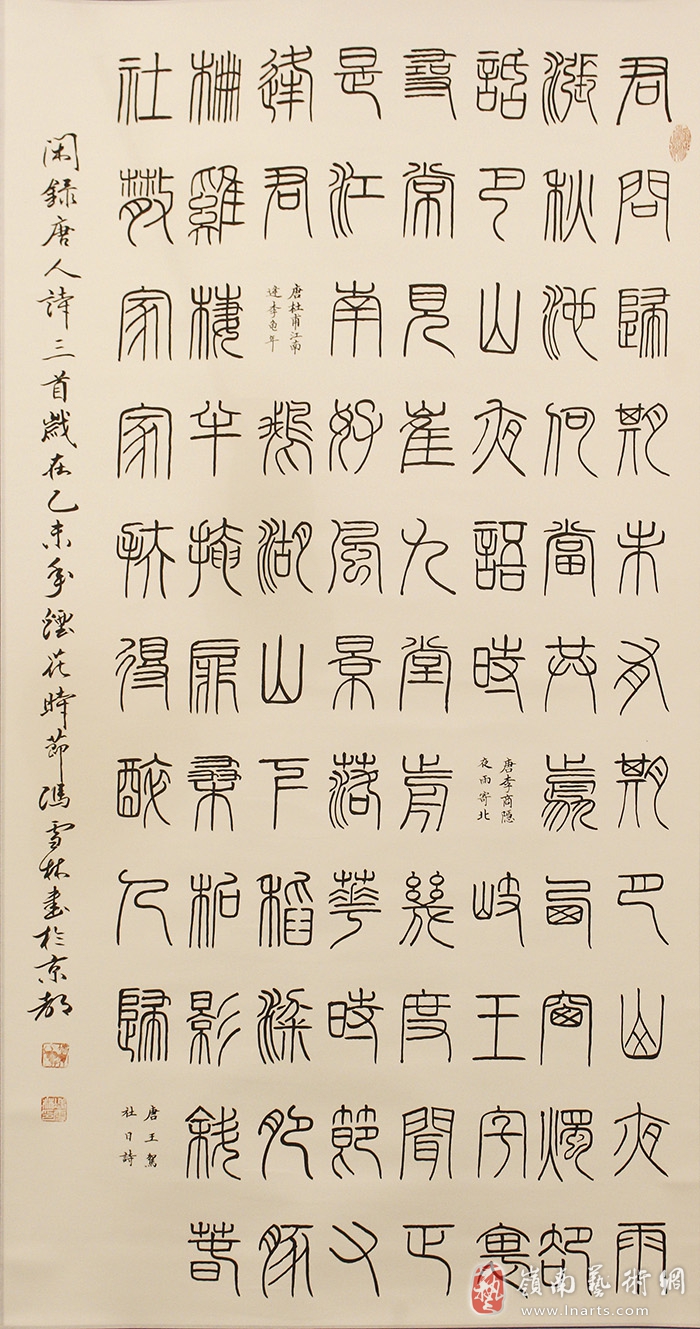 君問歸期未有期巴山夜雨
漲秋池何當共剪西窗燭卻
話巴山夜語時
唐李商隱
夜雨寄北
岐王宅裏
尋常見崔九堂前幾度聞正
是江南好風景落華時節又
逢君
唐杜甫江南
逢李龜年
鵝湖山下稻粱肥豚
柵雞棲半掩扉桑柘影斜春
社散家家扶得醉人歸
唐王駕
社日詩
閑錄唐人詩三首歲在乙未年花時節馮雪林書於京都
嶺南藝術網
www.lnarts.com